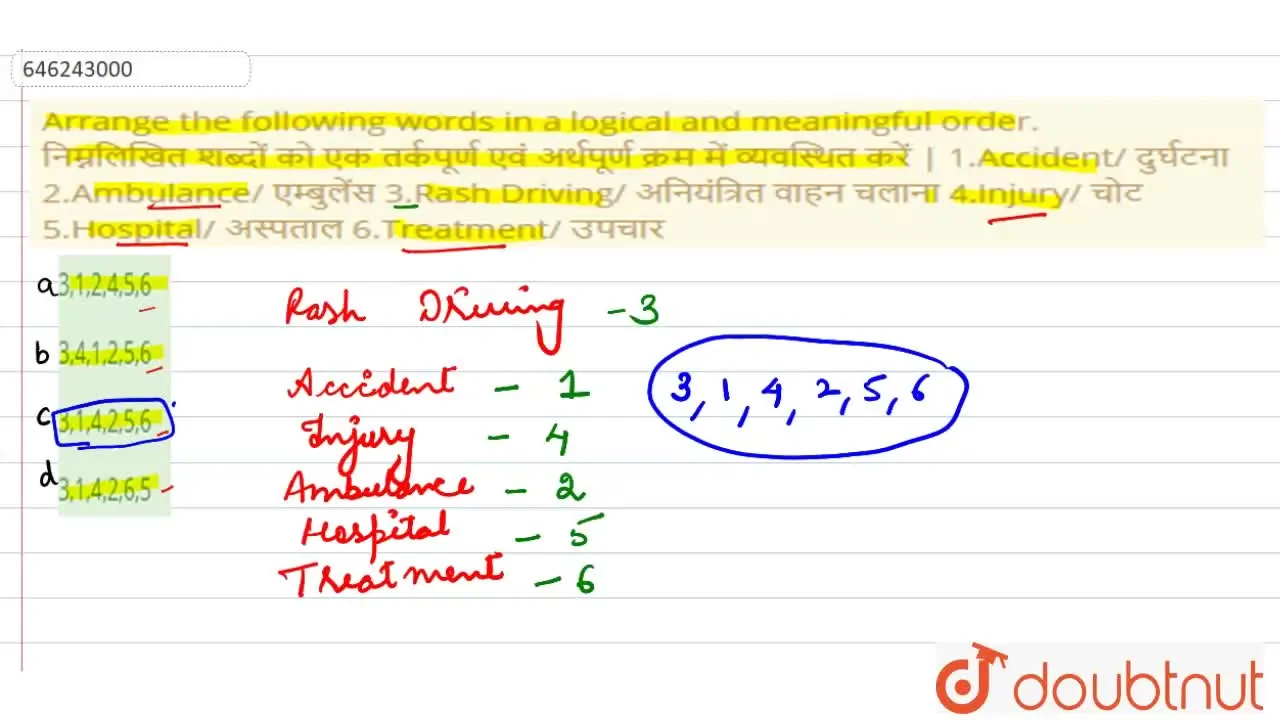 646243000
Arrange the following words in a logical and meaningful order.
निम्नलिखित शब्दों को एक तर्कपूर्ण एवं अर्थपूर्ण क्रम में व्यवस्थित करें | 1.Accident/ दुर्घटना
2.Ambulance/ एम्बुलेंस 3.Rash Driving/ अनियंत्रित वाहन चलाना 4.Injury/ चोट
5.Hospital/ अस्पताल 6.Treatment/ उपचार
a 3,1,2,4,5,6
b 3,4,1,2,5,6
c 3,1,4,2,5,6
d 3,1,4,2,6,5
Rash Driving - 3
Accident - 1
Injury - 4
Ambulance - 2
Hospital - 5
Treatment - 6
3, 1, 4, 2, 5, 6
doubtnut